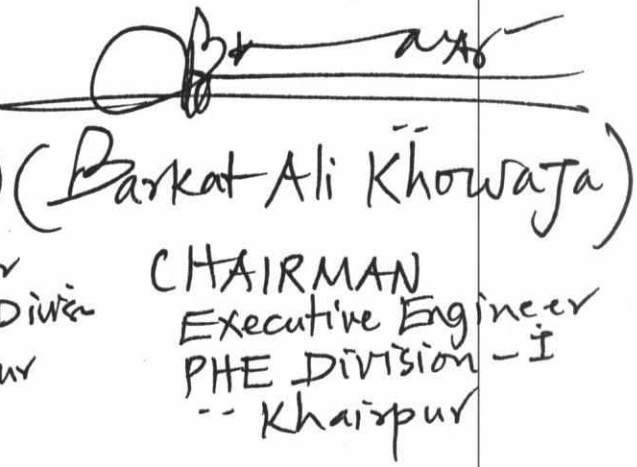 (Barkat Ali Khowaja)
CHAIRMAN
Executive Engineer
PHE Division - I
Khairpur